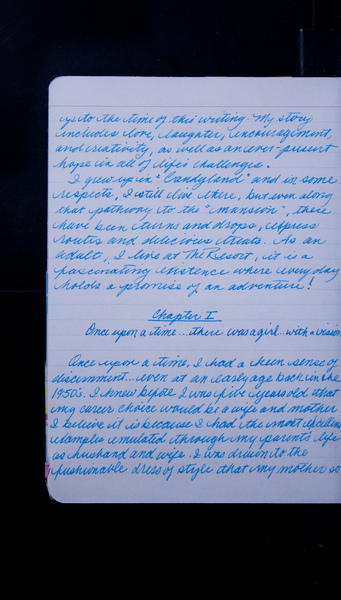 up to the time of this writing. My story
includes love, laughter, encouragement,
and creativity, as well as an ever-present
hope in all of life's challenges.
I grew up in "Candyland" and in some
respects, I still live there, but even along
that pathway to the "mansion", there
have been turns and drops, express
routes and delicious treats. As an
adult, I live at The Resort, it is a
fascinating existence where every day
holds a promise of an adventure!
Chapter I
Once upon a time... there was a girl... with a vision
Once upon a time, I had a keen sense of
discernment... even at an early age back in the
1950's. I knew before I was five years old that
my career choice would be a wife and mother.
I believe it is because I had the most excellent
example emulated through my parent's life
as husband and wife. I was drawn to the
fashionable dress of style that my mother so